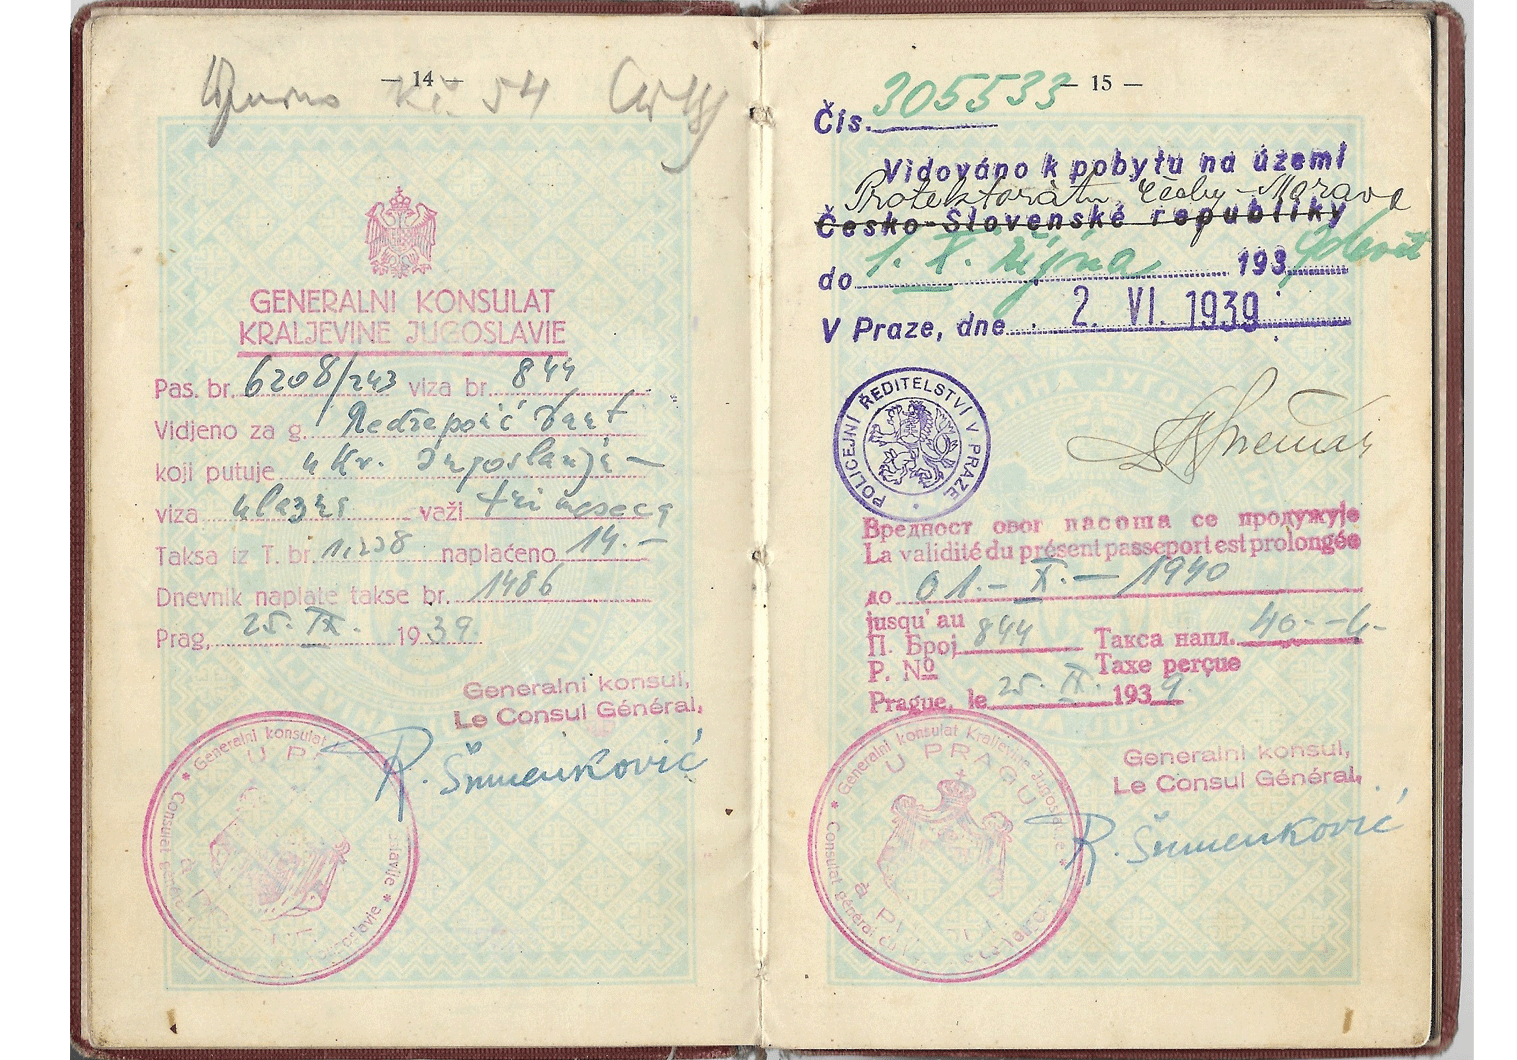 — 14 —
Kč 54
GENERALNI KONSULAT
KRALJEVINE JUGOSLAVIE
Pas. br. 6208/243 viza br. 844
Vidjeno za g.
koji putuje u Kr. Jugoslaviji —
viza ulazna važi tri meseca
Taksa iz T. br. 1,238 naplaćeno 14.—
Dnevnik naplate takse br. 1486
Prag, 25. IX. 1939
Generalni konsul,
Le Consul Général,
Generalni konsulat
U P
Consulat
— 15 —
Čís. 305533
Vidováno k pobytu na území
Protektorátu Čechy-Morava
Česko-Slovenské republiky
do 1. X. října 193 9devět
V Praze, dne 2. VI. 1939
POLICEJNÍ ŘEDITELSTVÍ V PRAZE
Вредност овог пасоша се продужује
La validité du présent passeport est prolongée
до 01 – X. – 1940
jusqu' au
П. Број 844 Такса напл. 40.-
P. № Taxe perçue
Prague, le 25. IX. 1939.
Generalni konsul,
Le Consul Général,
Generalni konsulat Kraljevine Jugoslavije
U PRAGU
Consulat général